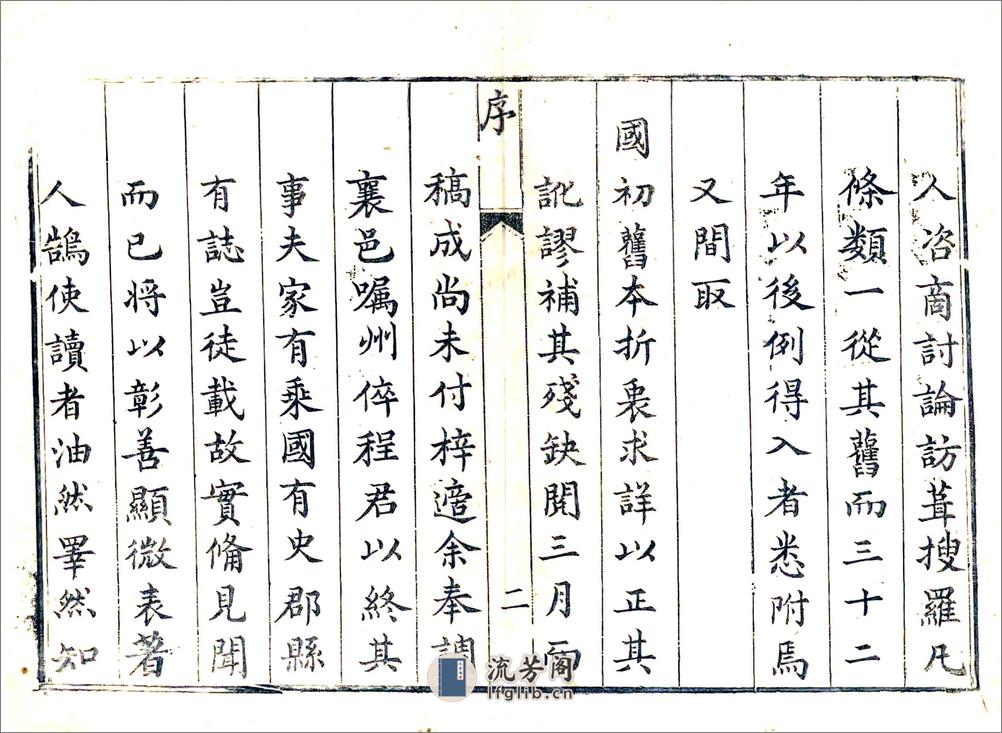 人咨商討論訪葺搜羅凡
條類一從其舊而三十二
年以後例得入者悉附焉
又間取
國初舊本折衷求詳以正其
訛謬補其殘缺閱三月而
序
二
稿成尚未付梓適余奉調
襄邑嘱州倅程君以終其
事夫家有乘國有史郡縣
有誌豈徒載故實俻見聞
而已将以彰善顯微表著
人鵠使讀者油然睪然知
流芳阁
lfglib.cn